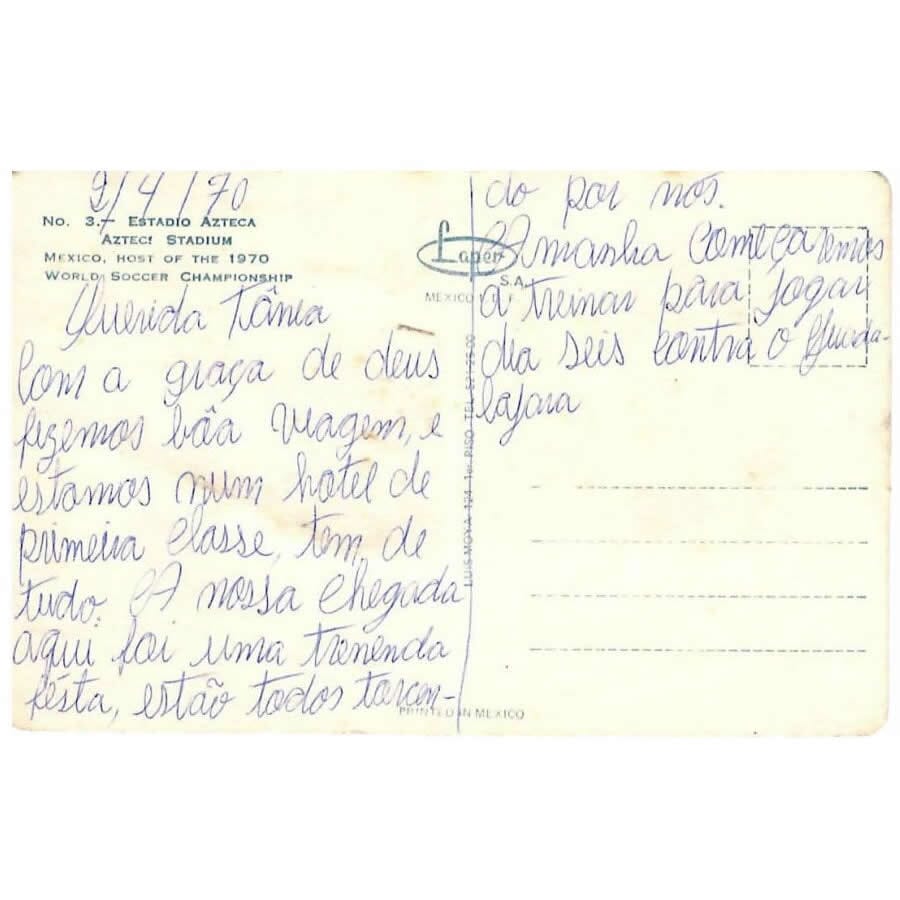 2/4/70
No. 3.— ESTADIO AZTECA
AZTEC! STADIUM
MEXICO, HOST OF THE 1970
WORLD SOCCER CHAMPIONSHIP
Querida Tânea
Com a graça de deus
fizemos bôa viagem, e
estamos num hotel de
primeira classe, tem de
tudo. A nossa chegada
aqui foi uma tremenda
fésta, estão todos torcen-
do por nós.
Amanha começaremos
a treinar para jogar
dia seis contra o Guada-
lajara
Laper
S.A.
MEXICO 1, D. F.
LUIS MOYA 124 1er. PISO TEL. 521-25-00
PRINTED IN MEXICO